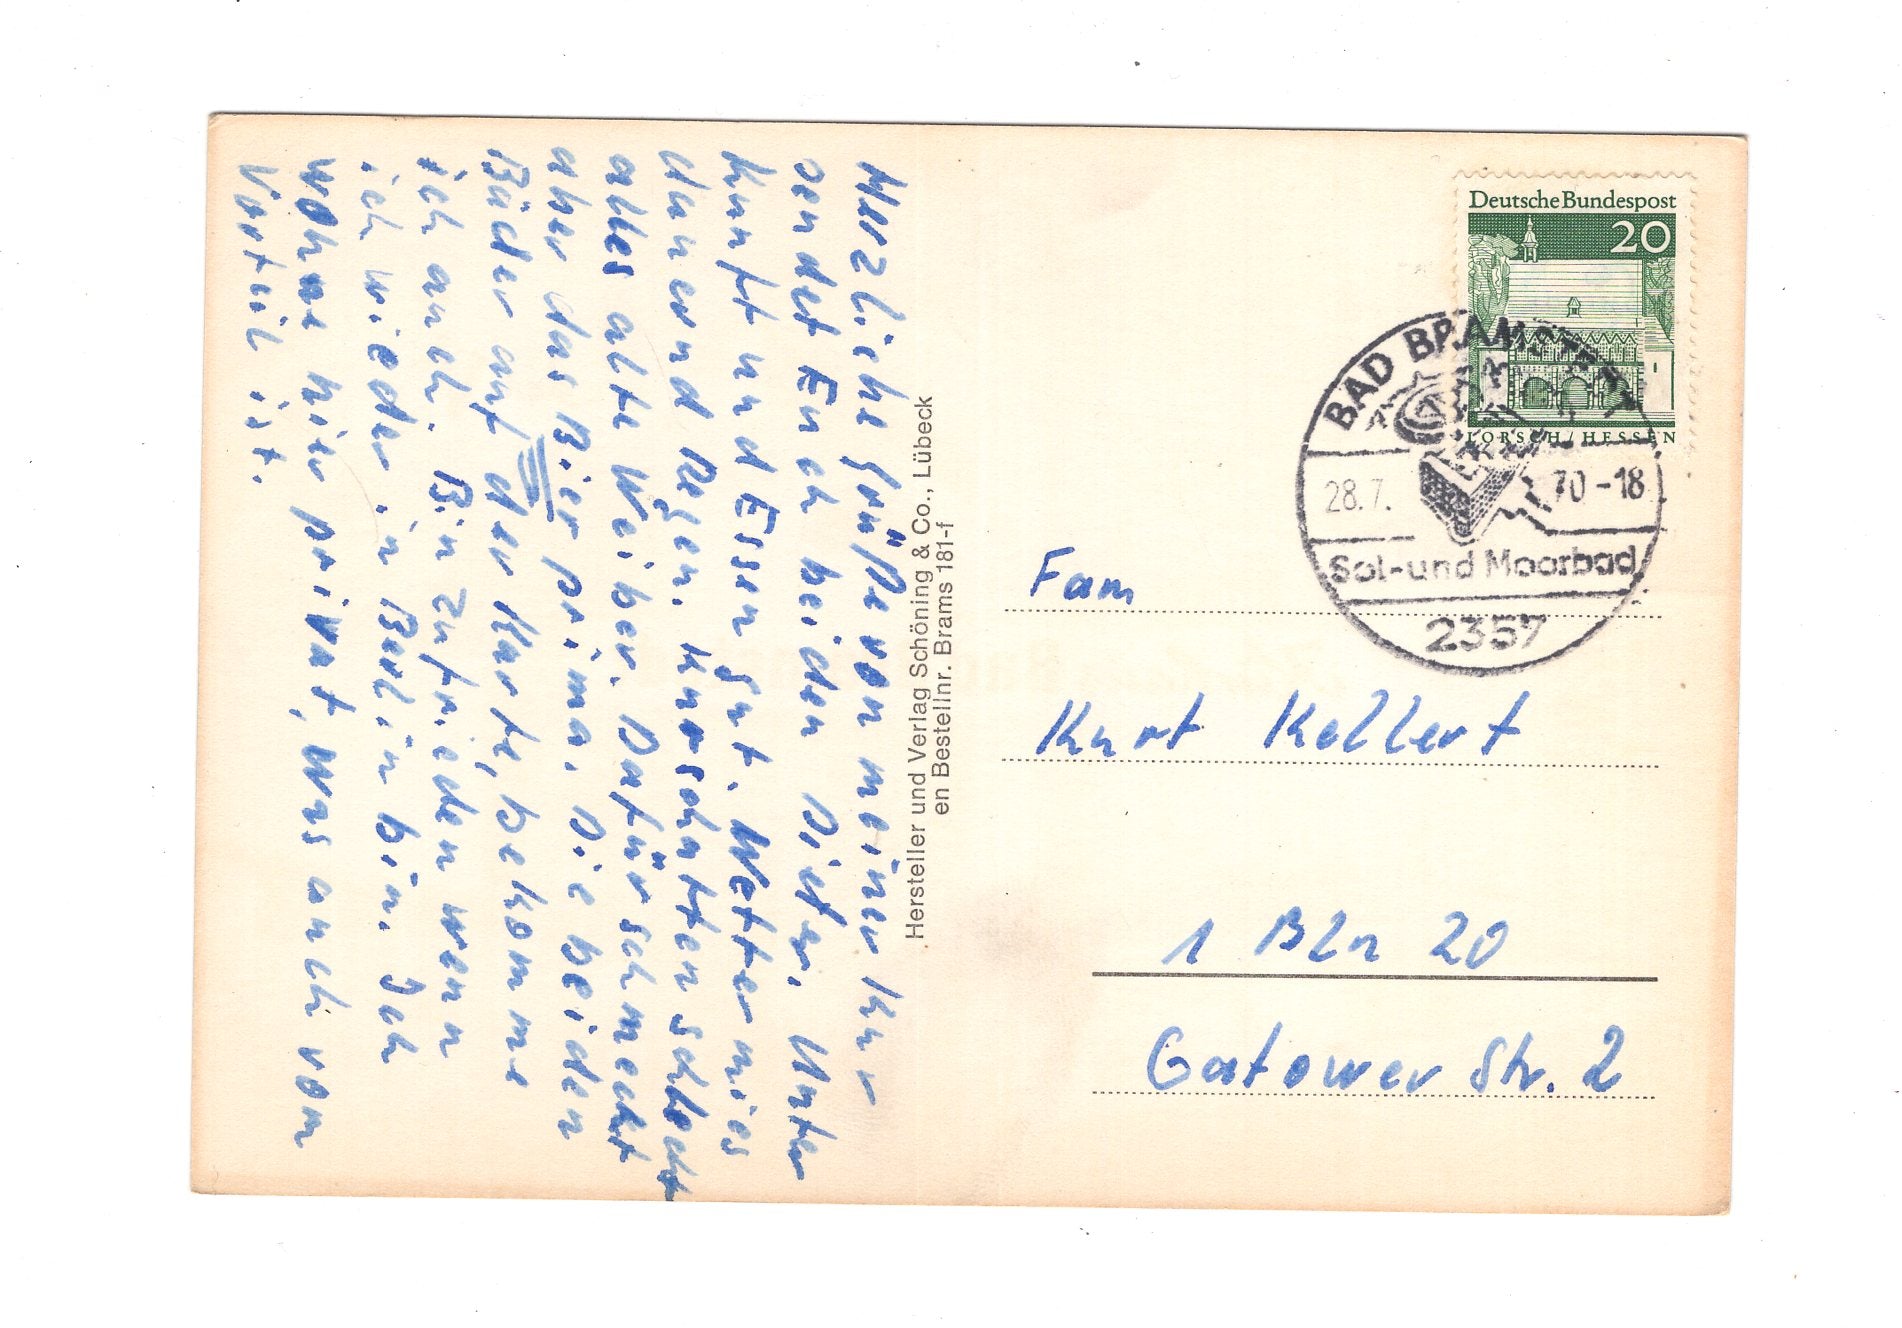 Herzliche Grüße von meiner Kur
sendet Euch beiden Dieter. Unter
kunft und Essen gut. Wetter mies
dauernd Regen. Kurschatten schlecht
alles alte Weiber. Dafür schmeckt
aber das Bier prima. Die beiden
Bäder auf der Karte, bekomme
ich auch. Bin zufrieden wenn
ich wieder in Berlin bin. Ich
wohne hier privat, was auch vom
Vorteil ist.
Hersteller und Verlag Schöning & Co., Lübeck
en Bestellnr. Brams 181-f
Deutsche Bundespost
20
LORSCH/HESSEN
BAD BRAMSTEDT
28.7.70-18
Sol-und Moorbad
2357
Fam
Kurt Kellert
1 Bln 20
Gatower Str. 2